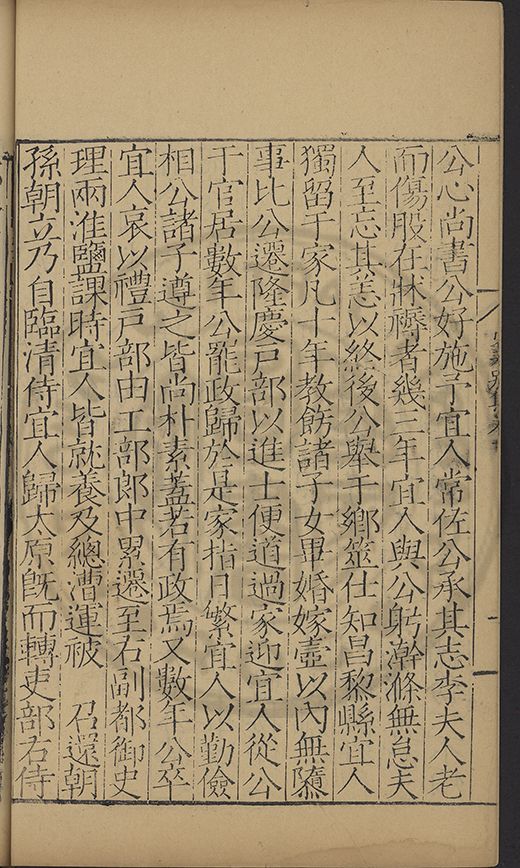 公心尚書公好施予宜人常佐公承其志李夫人老
而傷股在牀褥者幾三年宜人與公躬澣滌無怠夫
人至忘其恙以終後公舉于鄉筮仕知昌黎縣宜人
獨留于家凡十年教飭諸子女畢婚嫁壼以內無隳
事比公遷隆慶戶部以進士便道過家迎宜人從公
于官居數年公罷政歸於是家指日繁宜人以勤儉
相公諸子遵之皆尚朴素蓋若有政焉又數年公卒
宜人哀以禮戶部由工部郎中累遷至右副都御史
理兩淮鹽課時宜人皆就養及總漕運被　召還朝
孫朝立乃自臨清侍宜人歸太原旣而轉吏部右侍